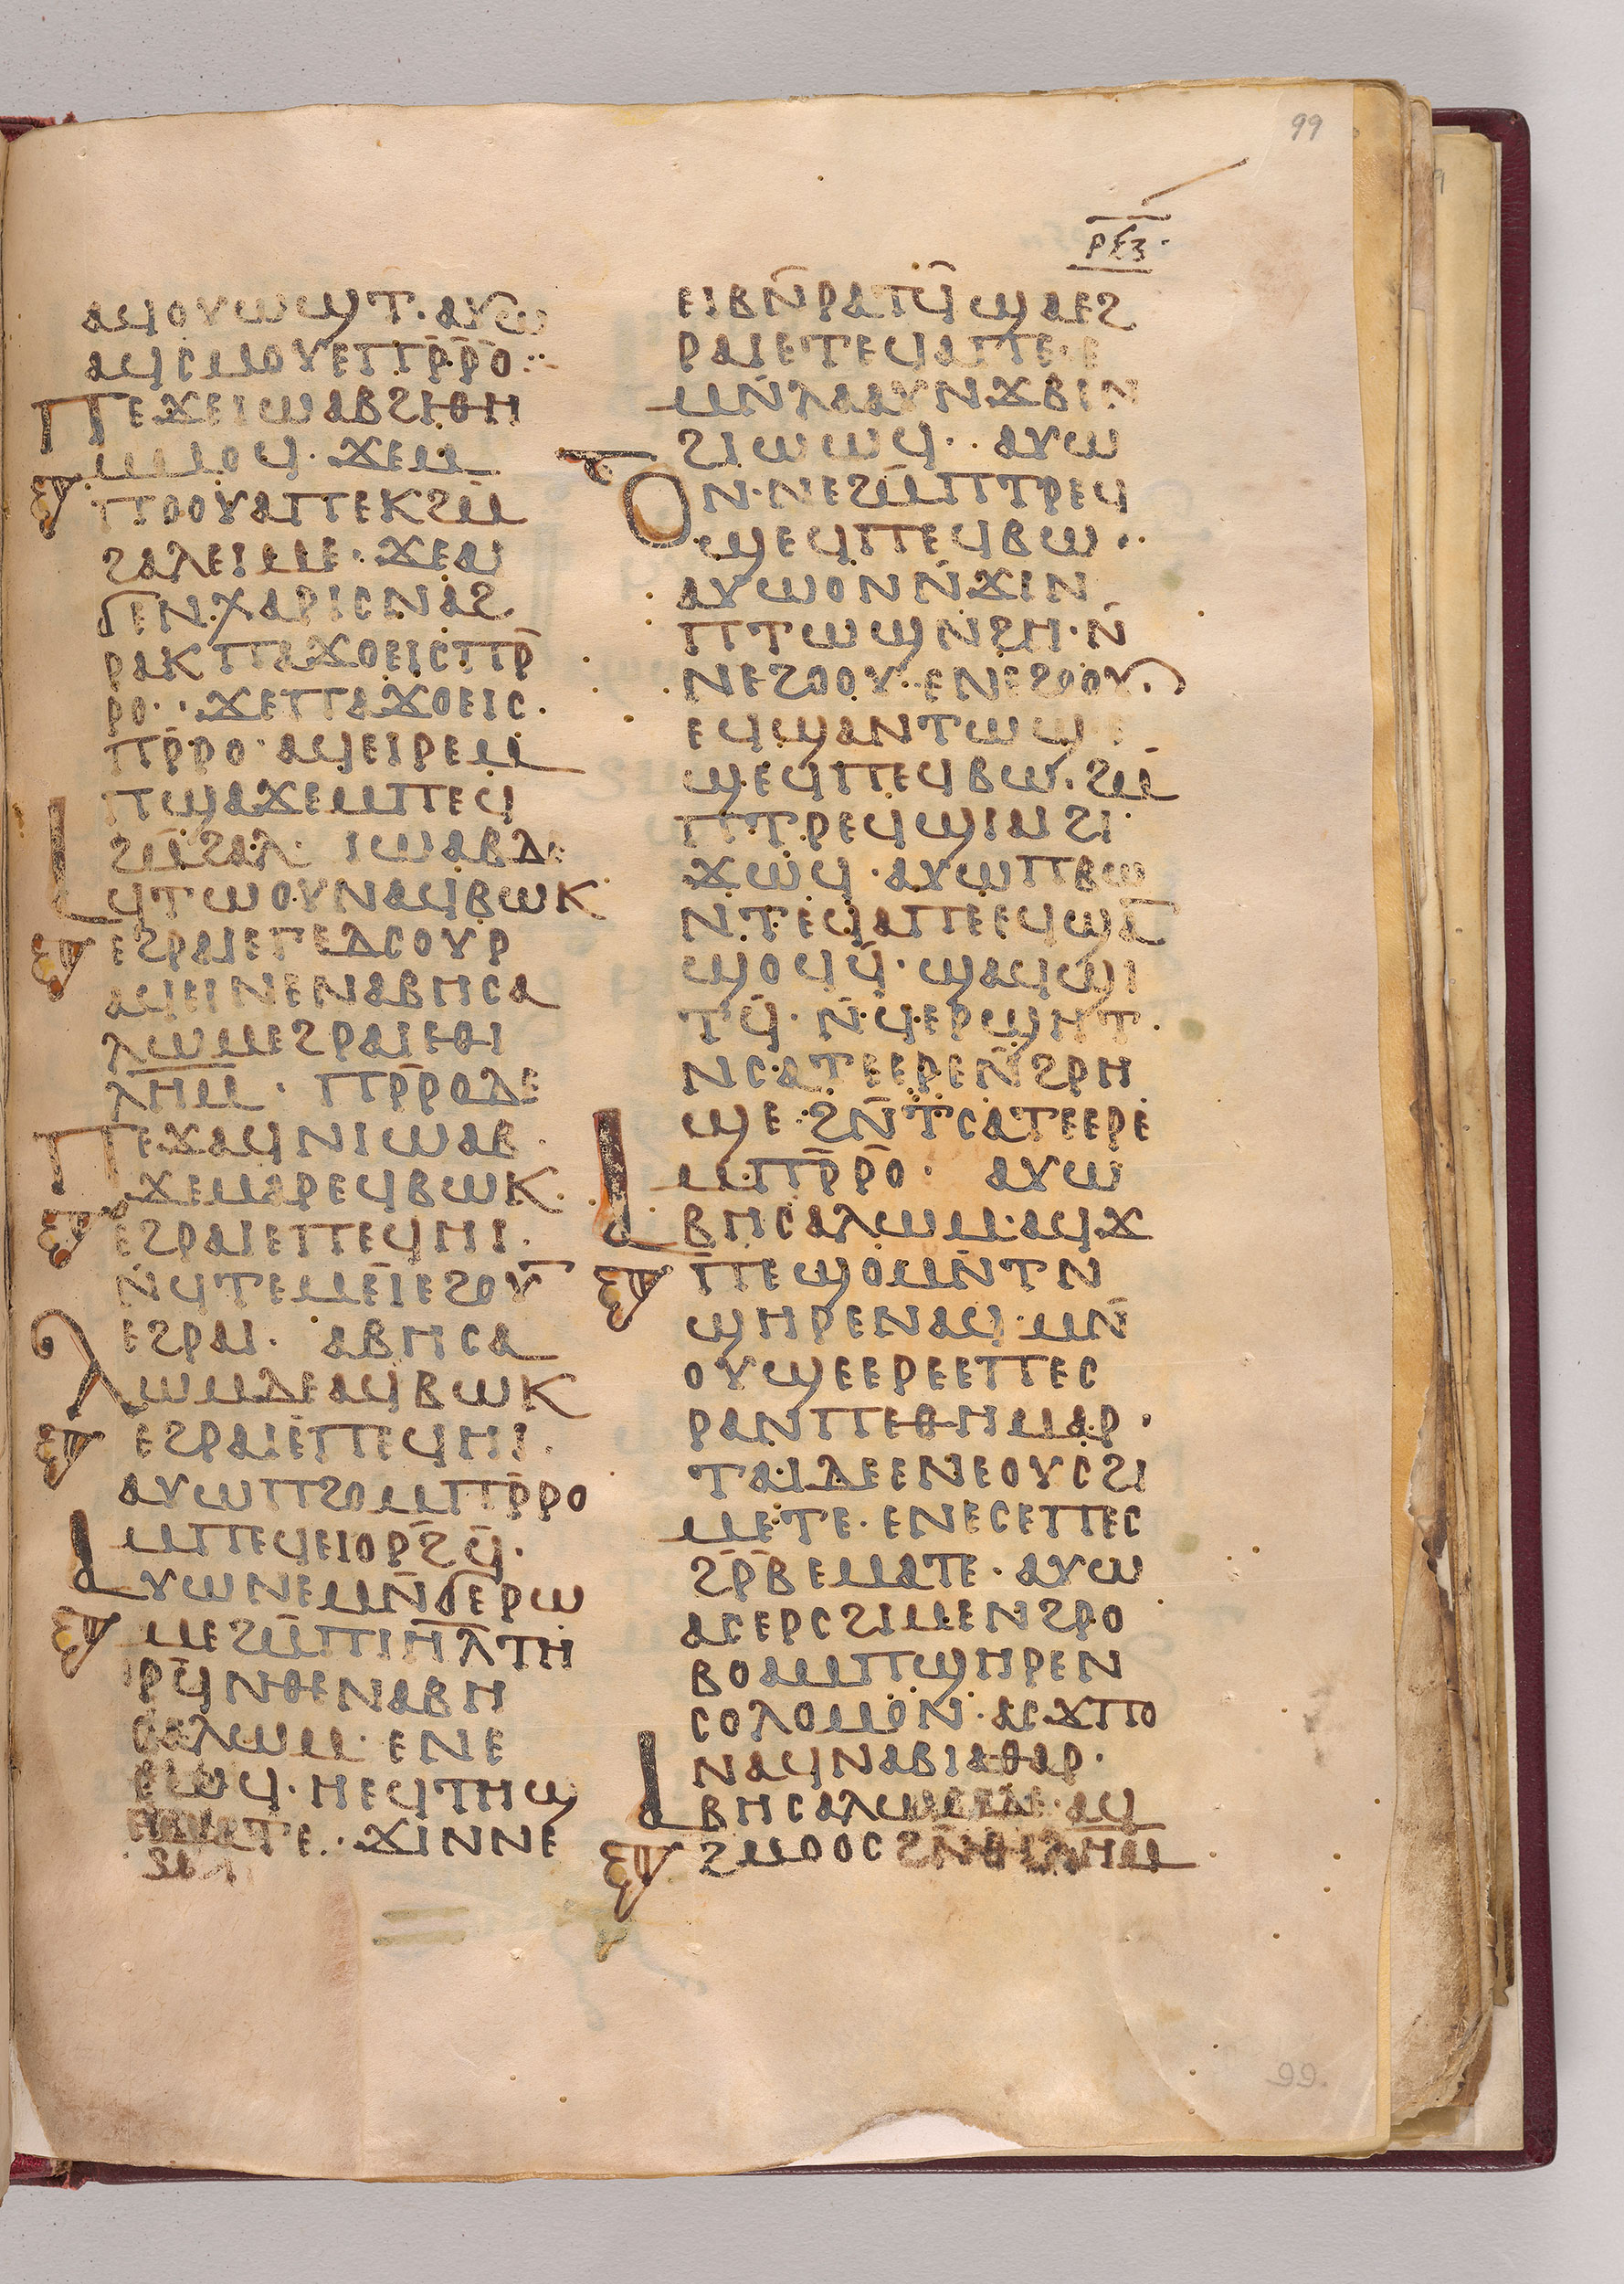 99
ⲣⲝⲍ
ⲁϥⲟⲩⲱϣⲧ· ⲁⲩⲱ
ⲁϥⲥⲙⲟⲩⲉⲡⲣ̄ⲣ̄ⲟ
ⲡⲉϫⲉⲓⲱⲁⲃϩⲓⲑⲏ
ⲙⲙⲟϥ· ϫⲉⲙ
ⲡⲟⲟⲩⲁⲡⲉⲕϩⲙ̄
ϩⲁⲗⲉⲓⲙⲉ· ϫⲉⲁⲓ
ϭⲓⲛⲭⲁⲣⲓⲥⲛⲁϩ
ⲣⲁⲕⲡⲁϫⲟⲉⲓⲥⲡⲣ̄
ⲣⲟ· ϫⲉⲡⲁϫⲟⲉⲓⲥ·
ⲡⲣ̄ⲣⲟ ⲁϥⲉⲓⲣⲉⲙ
ⲡϣⲁϫⲉⲙⲡⲉϥ
ϩⲙ̄ϩⲁⲗ· ⲓⲱⲁⲃⲇⲉ
ⲁϥⲧⲱⲟⲩⲛⲁϥⲃⲱⲕ
ⲉϩⲣⲁⲓⲉⲅⲉⲇⲥⲟⲩⲣ
ⲁϥⲉⲓⲛⲉⲛⲁⲃⲏⲥⲁ
ⲗⲱⲙⲉϩⲣⲁⲓⲉⲑⲓ
ⲗⲏⲙ· ⲡⲣ̄ⲣⲟⲇⲉ
ⲡⲉϫⲁϥⲛⲓⲱⲁⲃ·
ϫⲉⲙⲁⲣⲉϥⲃⲱⲕ
ⲉϩⲣⲁⲓⲉⲡⲉϥⲏⲓ·
ⲛ̄ϥⲧⲉⲙⲉⲓⲉϩⲟⲩ
ⲉϩⲣⲁⲓ· ⲁⲃⲏⲥⲁ
ⲗⲱⲙⲇⲉⲁϥⲃⲱⲕ
ⲉϩⲣⲁⲓⲉⲡⲉϥⲏⲓ·
ⲁⲩⲱⲡϩⲟⲙⲡⲣ̄ⲣⲟ
ⲙⲡⲉϥⲉⲓⲟⲣϩϥ̄·
ⲁⲩⲱⲛⲉⲙⲛ̄ϭⲉⲣⲱ
ⲙⲉϩⲙ̄ⲡⲓⲏ̄ⲗⲧⲏ
ⲣϥⲛ̄ⲑⲉⲛⲁⲃⲏ
ⲥⲁⲗⲱⲙ· ⲉⲛⲉ
ⲥⲱϥ· ⲛⲉϥⲧⲏϣ
ⲉⲙⲁⲧⲉ· ϫⲓⲛⲛⲉ
ⲉⲓⲃⲛ̄ⲣⲁⲧϥ̄ϣⲁⲉϩ
ⲣⲁⲓⲉⲧⲉϥⲁⲡⲉ· ⲉ
ⲙⲛ̄ⲗⲁⲁⲩⲛϫⲃⲓⲛ
ϩⲓⲱⲱϥ· ⲁⲩⲱ
ⲟⲛ·ⲛⲉϩⲙ̄ⲡⲧⲣⲉϥ
ϣⲉϥⲡⲉϥⲃⲱ·
ⲁⲩⲱⲟⲛⲛ̄ϫⲓⲛ
ⲡⲧⲱϣⲛϩⲏ·ⲛ̄
ⲛⲉϩⲟⲟⲩ·ⲉⲛⲉϩⲟⲟⲩ·
ⲉϥϣⲁⲛⲧⲱϣ ⲉ
ϣⲉϥⲡⲉϥⲃⲱ·ϩⲙ̄
ⲡⲧⲣⲉϥϣⲓⲁⲓϩⲓ
ϫⲱϥ·ⲁⲩⲱⲡⲃⲱ
ⲛⲧⲉϥⲁⲡⲉⲉϥϣⲁ
ϣⲟϥϥ̄· ϣⲁϥϣⲓ
ⲧϥ̄· ⲛ̄ϥⲉⲣϣⲏⲧ·
ⲛⲥⲁⲧⲉⲉⲣⲉⲛ̄ϩⲣⲏ
ϣⲉ·ϩⲛ̄ⲧⲥⲁⲧⲉⲉⲣⲉ
ⲙⲡⲣ̄ⲣ̄ⲟ· ⲁⲩⲱ
ⲁⲃⲏⲥⲁⲗⲱⲙ·ⲁϥϫ
ⲡⲉϣⲟⲙⲛ̄ⲧⲛ
ϣⲏⲣⲉⲛⲁϥ·ⲙⲛ̄
ⲟⲩϣⲉⲉⲣⲉⲉⲡⲉⲥ
ⲣⲁⲛⲡⲉⲑⲏⲙⲁⲣ·
ⲧⲁⲓⲇⲉⲉⲛⲉⲟⲩⲥϩⲓ
ⲙⲉⲧⲉ·ⲉⲛⲉⲥⲉⲡⲉⲥ
ϩⲣ̄ⲃⲉⲙⲁⲧⲉ·ⲁⲩⲱ
ⲁⲥⲉⲣⲥϩⲓⲙⲉⲛϩⲣⲟ
ⲃⲟⲁⲙⲡϣⲏⲣⲉⲛ
ⲥⲟⲗⲟⲙⲟⲛ·ⲁⲥϫⲡⲟ
ⲛⲁϥⲛⲁⲃⲓⲁⲑⲁⲣ·
ⲁⲃⲏⲥⲁⲗⲱⲙⲇⲉ·ⲁϥ
ϩⲙⲟⲟⲥϩⲛ̄ⲑⲓⲗⲏⲙ